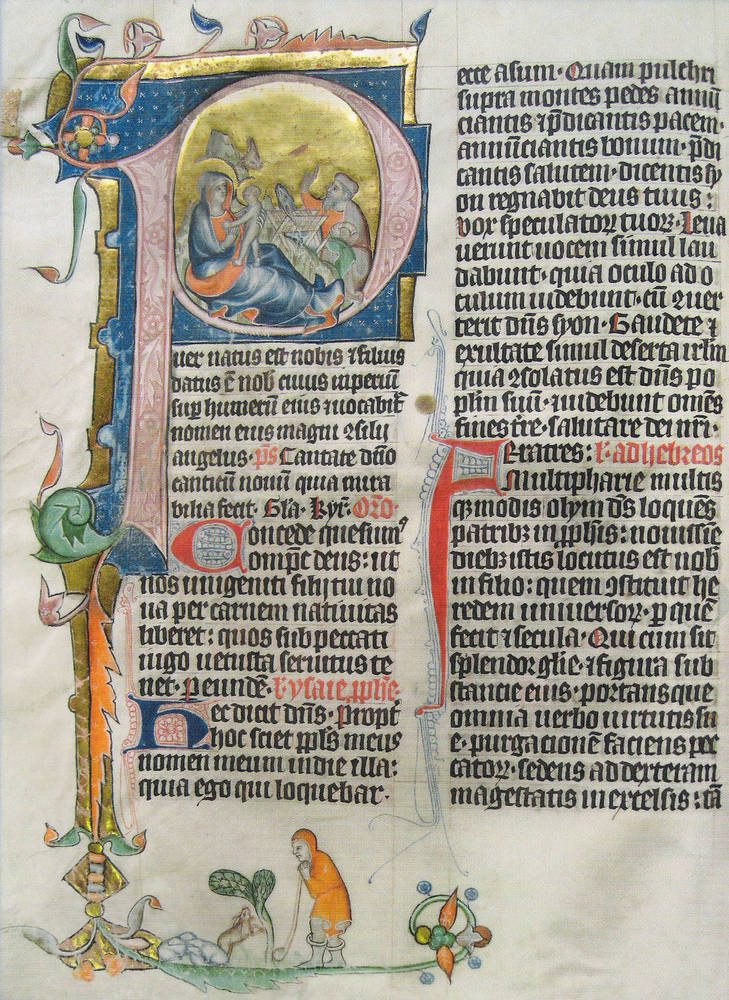 Puer natus est nobis ⁊ filius
datus ē nob cuius īperiū
sup humerū eius ⁊ uocabit᷑
nomen eius magni ꝯsilij
angelus · p̄s Cantate dn̄o
canticū nouū quia mira
bilia fecit · Gl̄a · Kyr̄ · Or̄o ·
Concede quesum⁹
omp̄c deus : ut
nos unigeniti filij tui no
ua per carnem natiuitas
liberet : quos sub peccati
iugo uetusta seruitus te
net · ꝑ eundē · l' ysaie ꝓph̄e ·
Hec dicit dn̄s · Propt̄
hoc sciet ppl̄s meus
nomen meum in die illa :
quia ego qui loquebar ·
ecce asum · Quam pulchri
supra montes pedes annū
ciantis ⁊ p̄dicantis pacem ·
annūciantis bonum · p̄di
cantis salutem · dicentis sy
on regnabit deus tuus :
Vox speculatoꝝ tuoꝝ · Leua
uerunt uocem simul lau
dabunt · quia oculo ad o
culum uidebunt · cū ꝯuer
terit dn̄s syon · Gaudete ⁊
exultate simul deserta irl̄m
quia ꝯsolatus est dn̄s po
pl̄m suū · ⁊ uidebunt om̄es
fines t̄re · salutare dei nr̄i ·
Fratres : l' ad hebreos
Multipharie multis
qꝫ modis olym dn̄s loquēs
patribꝫ in ꝓph̄is : nouissīe
diebꝫ istis locutus est nob̄
in filio : quem ꝯstituit he
redem uniuersoꝝ · ꝑ quē
fecit ⁊ secula · Qui cum sit
splendor gl̄ie · ⁊ figura sub
stancie eius · portansque
omnia uerbo uirtutis su
e · purgationē faciens pec
catoꝝ · sedens ad dexteram
magestatis in excelsis : tā